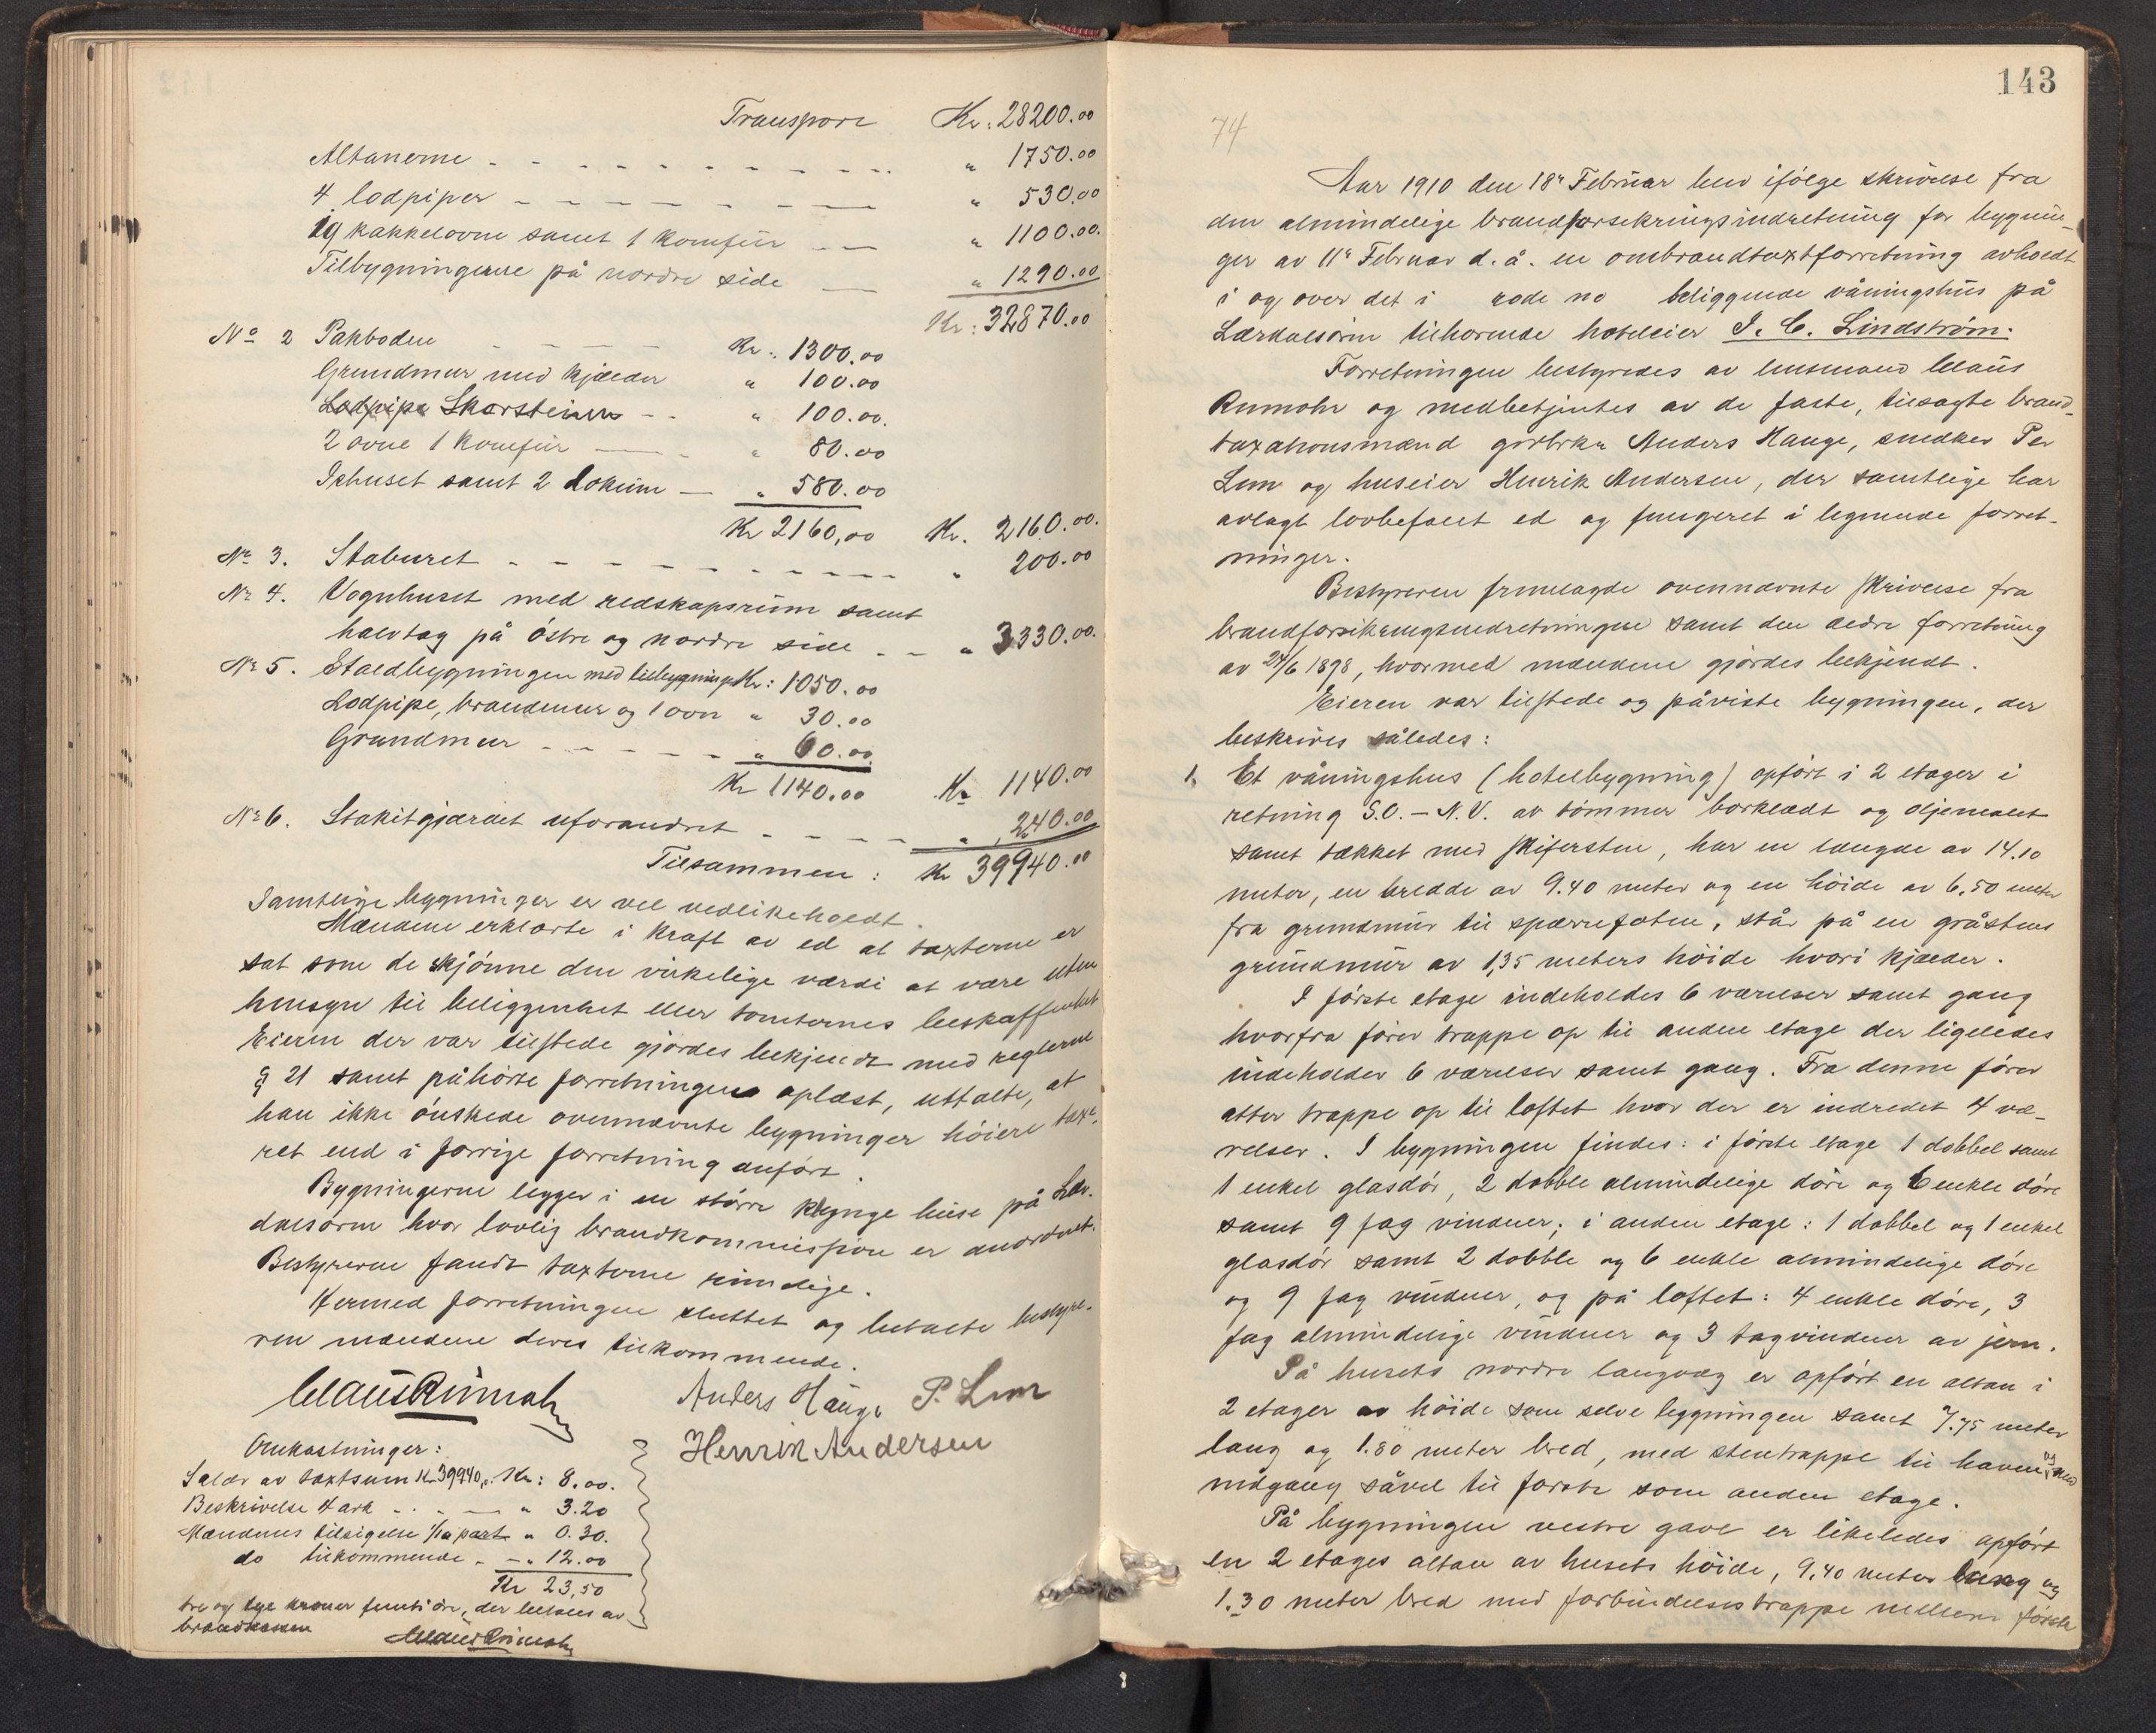 Transport Kr. 28200.00
Altanerne - - - - - " 1750.00
4 lodpiper - - - - - " 530.00
19 kakkelovne samt 1 komfur - - " 1100.00.
Tilbygningerne på nordre side - " 1290.00
Kr: 32870.00
No 2 Pakboden - - - - Kr. 1300.00
Grundmur med kjælder " 100.00
Lodpipe Skorsteinen - - " 100.00.
2 ovne 1 komfur - - " 80.00
Ishuset samt 2 lokum - " 580.00
Kr 2160,00 Kr. 2160.00.
Nr 3. Staburet - - - - - " 200.00
Nr 4. Vognhuset med redskapsrum samt
halvtag på östre og nordre side - - " 3330.00.
Nr 5. Staldbygningen med tilbygning Kr: 1050.00
Lodpipe, brandmur og 1 ovn " 30.00
Grundmur - - - - - " 60.00.
Kr 1140.00 Kr 1140.00
Nr 6. Stakitgjærdet uforandret - - - - " 240.00
Tilsammen: Kr 39940.00
Samtlige bygninger er vel vedlikeholdt.
Mændene erklærte i kraft av ed at taxterne er
sat som de skjönne den virkelige værdi at være uten
hensyn til beliggenhet eller tomternes beskaffenhet
Eieren der var tilstede gjordes bekjendt med reglerne
§ 21 samt påhörte forretningens oplæst, uttalte, at
han ikke önskede ovennævnte bygninger höiere taxe-
ret end i forrige forretning anfört.
Bygningerne ligger i en större klynge huse på Lær-
dalsören hvor lovlig brandkommission er anordnet.
Bestyreren fandt taxterne rimelige.
Hermed forretningen sluttet og betalte bestyre-
ren mændene deres tilkommende.
Claus Rumohr Anders Hauge P. Lem
Henrik Andersen
Omkostninger:
Salær av taxtsum Kr 39940,- Kr: 8.00.
Beskrivelse 4 ark - - - " 3.20
Mændenes tilsigelse 1/10 part " 0.30.
do tilkommende - - " 12.00
Kr 23,50
tre og tyve kroner femti öre, der betales av
brandkassen
Claus Rumohr
143
74
Aar 1910 den 18de Februar blev ifölge skrivelse fra
den almindelige brandforsikringsindretning for bygnin-
ger av 11te Februar d.å. en ombrandtaxtforretning avholdt
i og over det i rode no beliggende våningshus på
Lærdalsören tilhörende hoteleier J. C. Lindström.
Forretningen bestyredes av lensmand Claus
Rumohr og medbetjentes av de faste, tilsagte brand-
taxationsmænd gårbrkr Anders Hauge, snedker Per
Lem og huseier Henrik Andersen, der samtlige har
avlagt lovbefalet ed og fungeret i lignende forret-
ninger.
Bestyreren fremlagde ovennævnte skrivelse fra
brandforsikringsindretningen samt den ældre forretning
av 24/6 1898, hvormed mændene gjordes bekjendt.
Eieren var tilstede og påviste bygningen, der
beskrives således:
1. Et våningshus (hotelbygning) opfört i 2 etager i
retning S.O. - N.V. av tömmer bordklædt og oljemalet
samt tækket med skifersten, har en længde av 14.10
meter, en bredde av 9.40 meter og en höide av 6.50 meter
fra grundmur til spærrefoten, står på en gråstens
grundmur av 1,35 meters höide hvori kjælder.
I förste etage indeholdes 6 værelser samt gang
hvorfra förer trappe op til anden etage der ligeledes
indeholder 6 værelser samt gang. Fra denne förer
atter trappe op til loftet hvor der er indredet 4 væ-
relser. I bygningen findes: i förste etage 1 dobbel samt
1 enkel glasdör, 2 dobble almindelige döre og 6 enkle döre
samt 9 fag vinduer; i anden etage: 1 dobbel og 1 enkel
glasdör samt 2 dobble og 6 enkle almindelige döre
og 9 fag vinduer, og på loftet: 4 enkle döre, 3
fag almindelige vinduer og 3 tagvinduer av jern.
På husets nordre langvæg er opfört en altan i
2 etager av höide som selve bygningen samt 7.75 meter
lang og 1.80 meter bred, med stentrappe til haven og med
indgang såvel til förste som anden etage.
På bygningen vestre gavl er likeledes opfört
en 2 etages altan av husets höide, 9,40 meter lang og
1.30 meter bred med forbindelsestrappe mellem förste